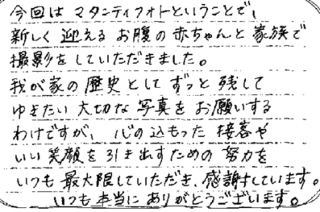 今回はマタニティフォトということで、
新しく迎えるお腹の赤ちゃんと家族で
撮影をしていただきました。
我が家の歴史としてずっと残して
ゆきたい大切な写真をお願いする
わけですが、心の込もった接客や
いい笑顔を引き出すための努力を
いつも最大限していただき、感謝しています。
いつも本当にありがとうございます。